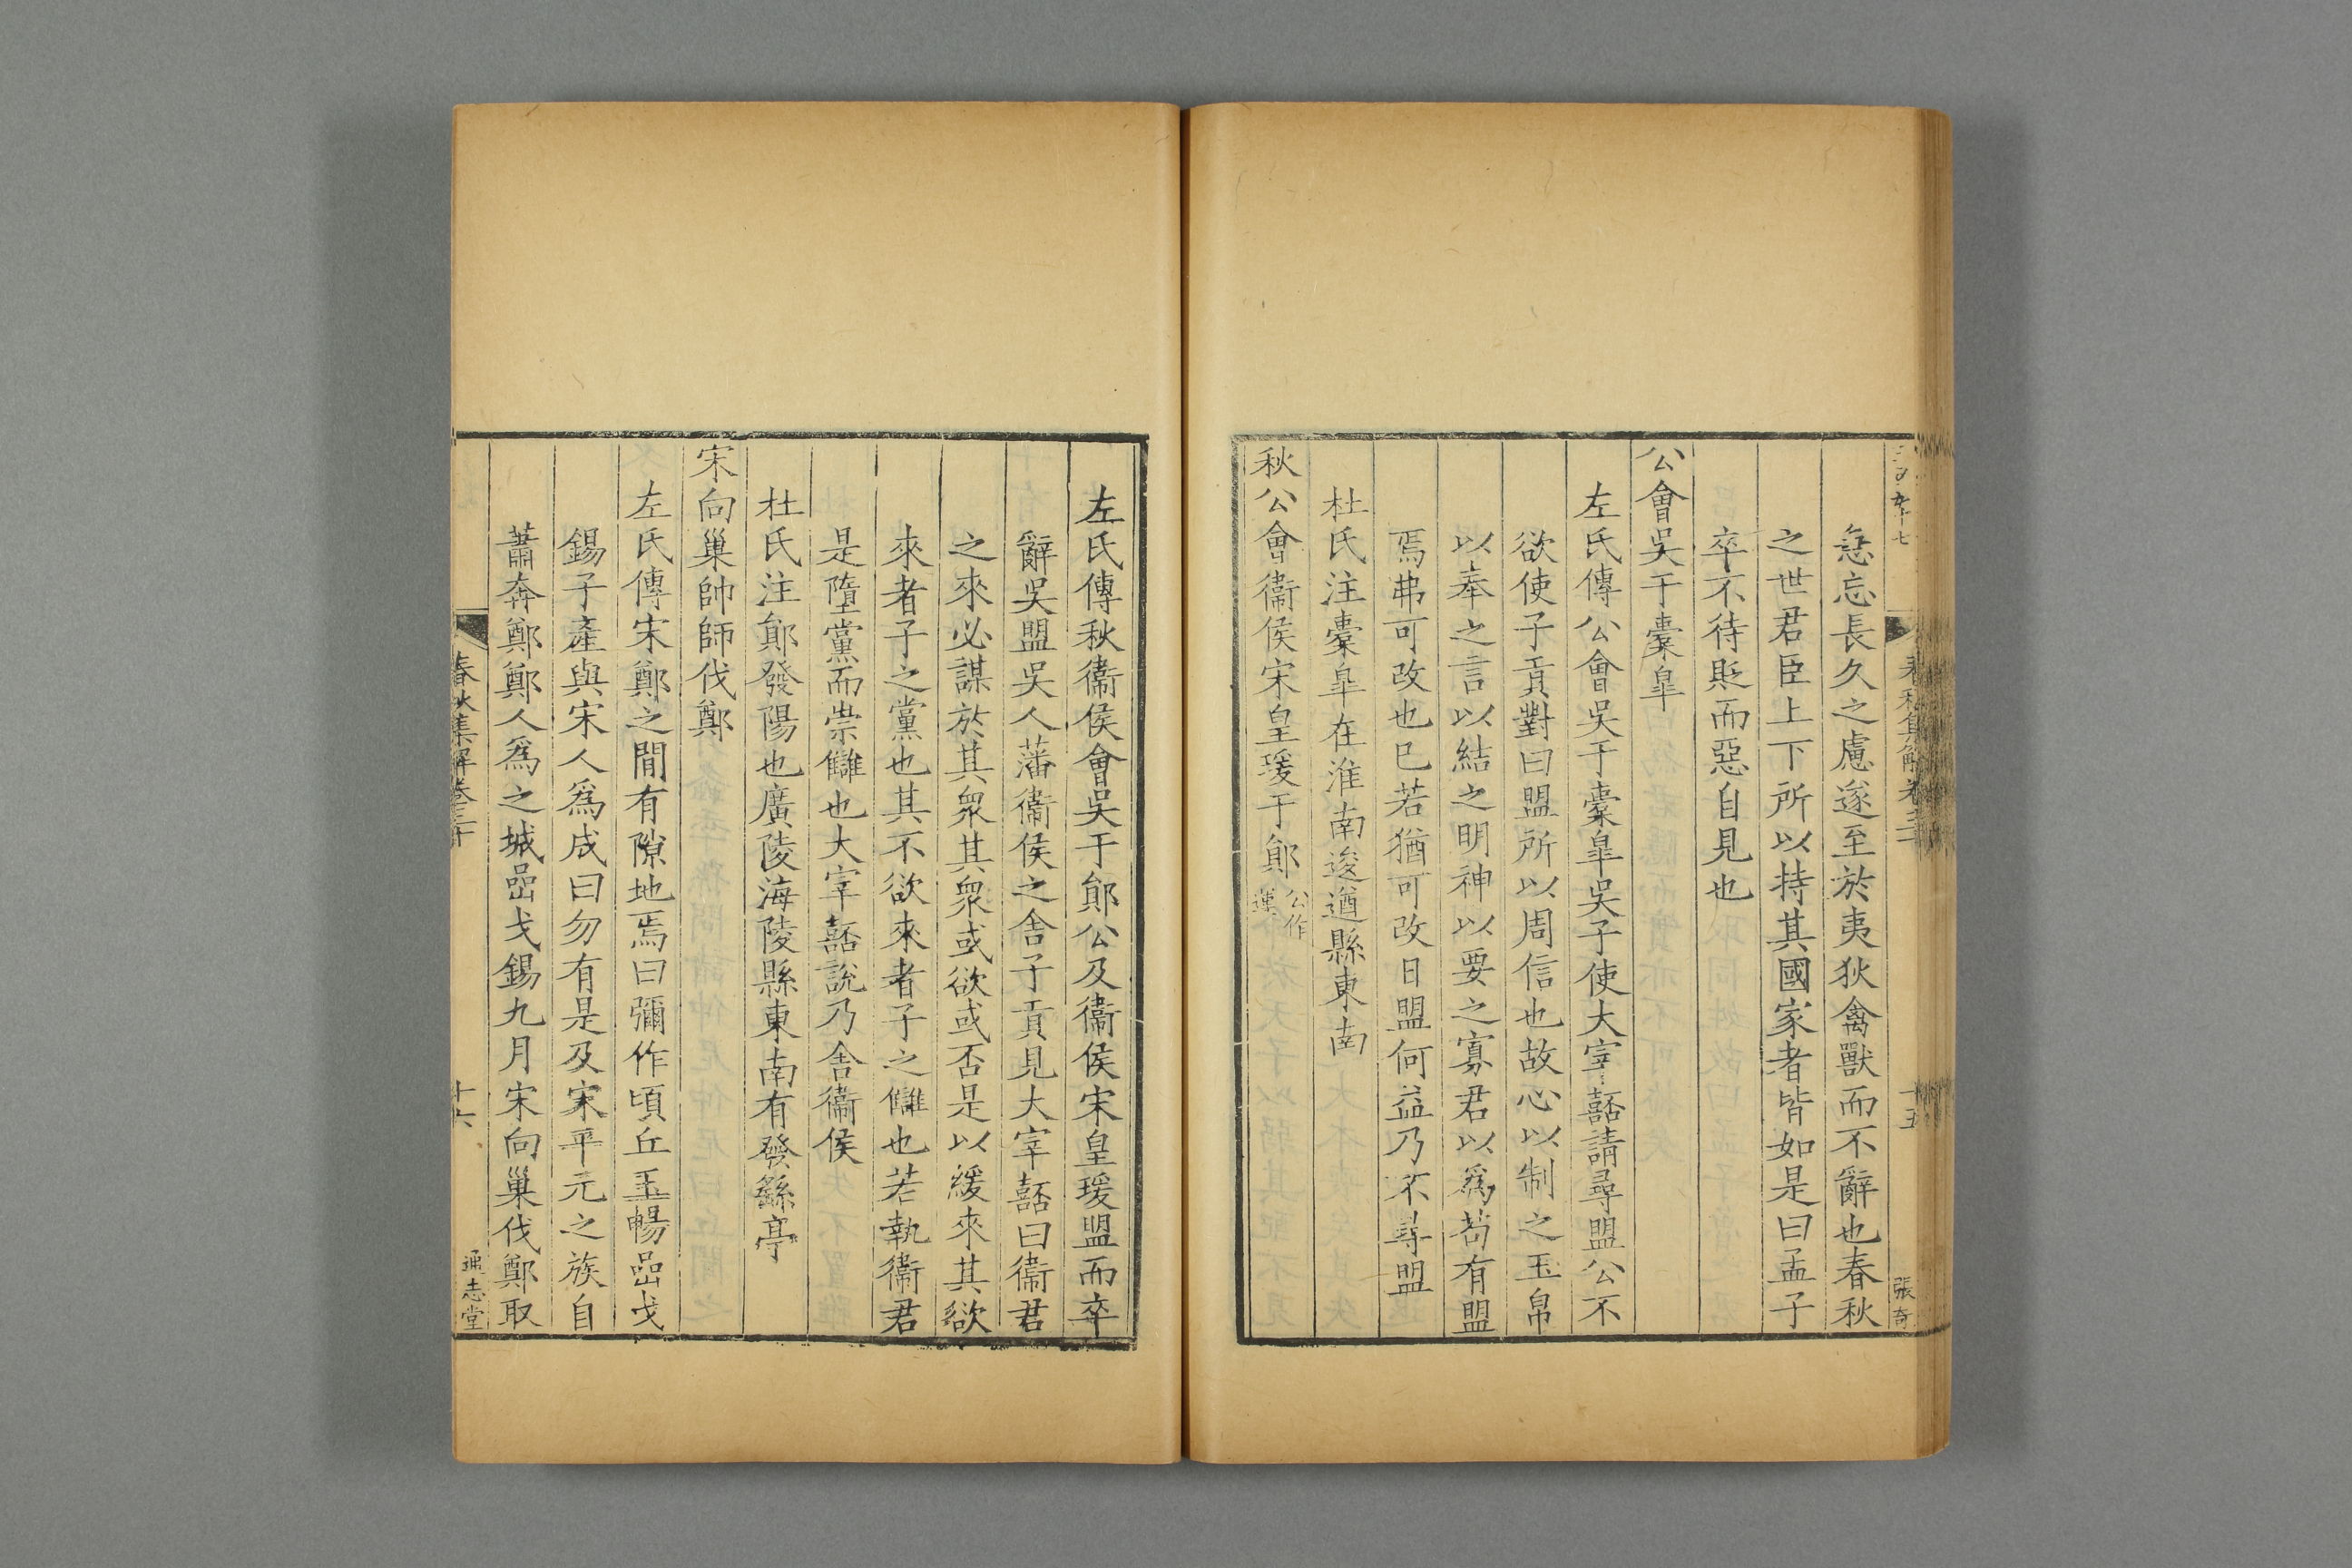 急忘長久之慮遂至於夷狄禽獸而不辭也春秋
之世君臣上下所以持其國家者皆如是曰孟子
卒不待貶而惡自見也
公會吳于橐皐
左氏傳公會吳于橐皐吳子使大宰嚭請尋盟公不
欲使子貢對曰盟所以周信也故心以制之玉帛
以奉之言以結之明神以要之寡君以爲苟有盟
焉弗可改也已若猶可改日盟何益乃不尋盟
杜氏注橐皐在淮南逡遒縣東南
秋公會衞侯宋皇瑗于鄖公作
運
張奇
十五
左氏傳秋衞侯會吳于鄖公及衞侯宋皇瑗盟而卒
辭吳盟吳人藩衞侯之舍子貢見大宰嚭曰衞君
之來必謀於其衆其衆或欲或否是以緩來其欲
來者子之黨也其不欲來者子之讎也若執衞君
是墮黨而崇讎也大宰嚭說乃舍衞侯
杜氏注鄖發陽也廣陵海陵縣東南有發繇亭
宋向巢帥師伐鄭
左氏傳宋鄭之閒有隙地焉曰彌作頃丘玉暢嵒戈
錫子產與宋人爲成曰勿有是及宋平元之族自
蕭奔鄭鄭人爲之城嵒戈錫九月宋向巢伐鄭取
春秋集解卷三十
十六
通志堂